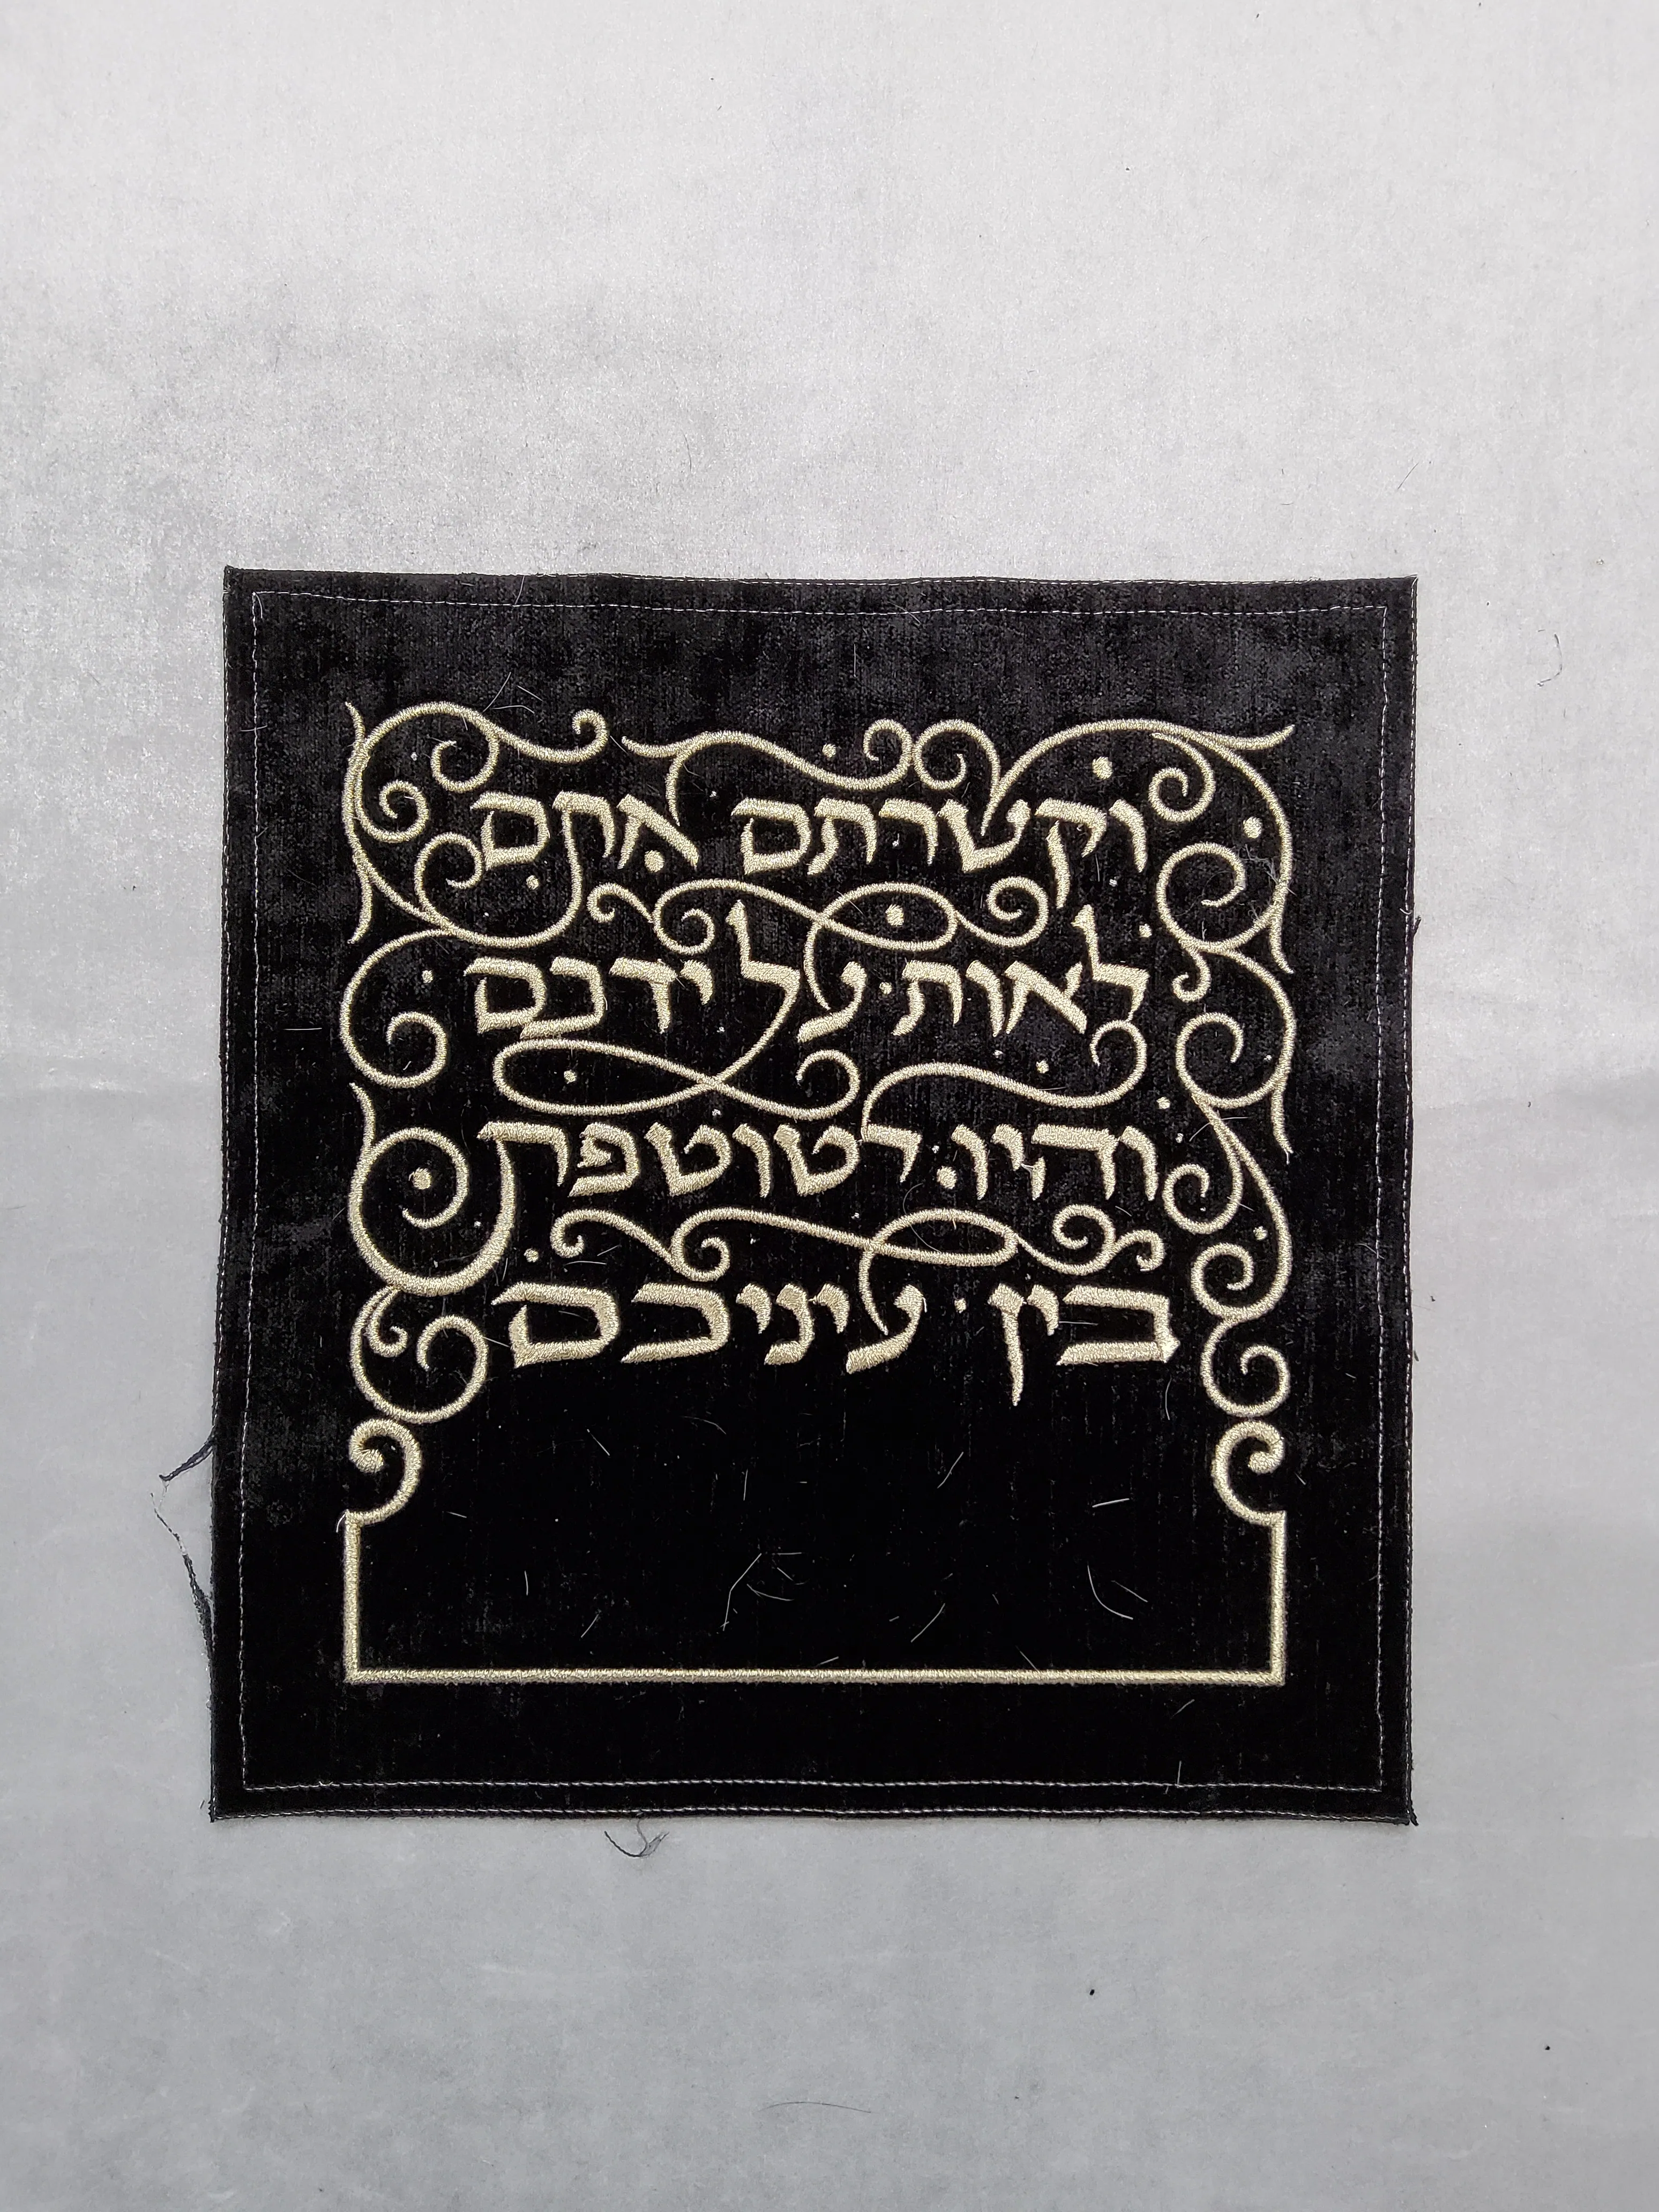 וקשרתם אתם
לאות על ידכם
והיו לטוטפת
בין עיניכם